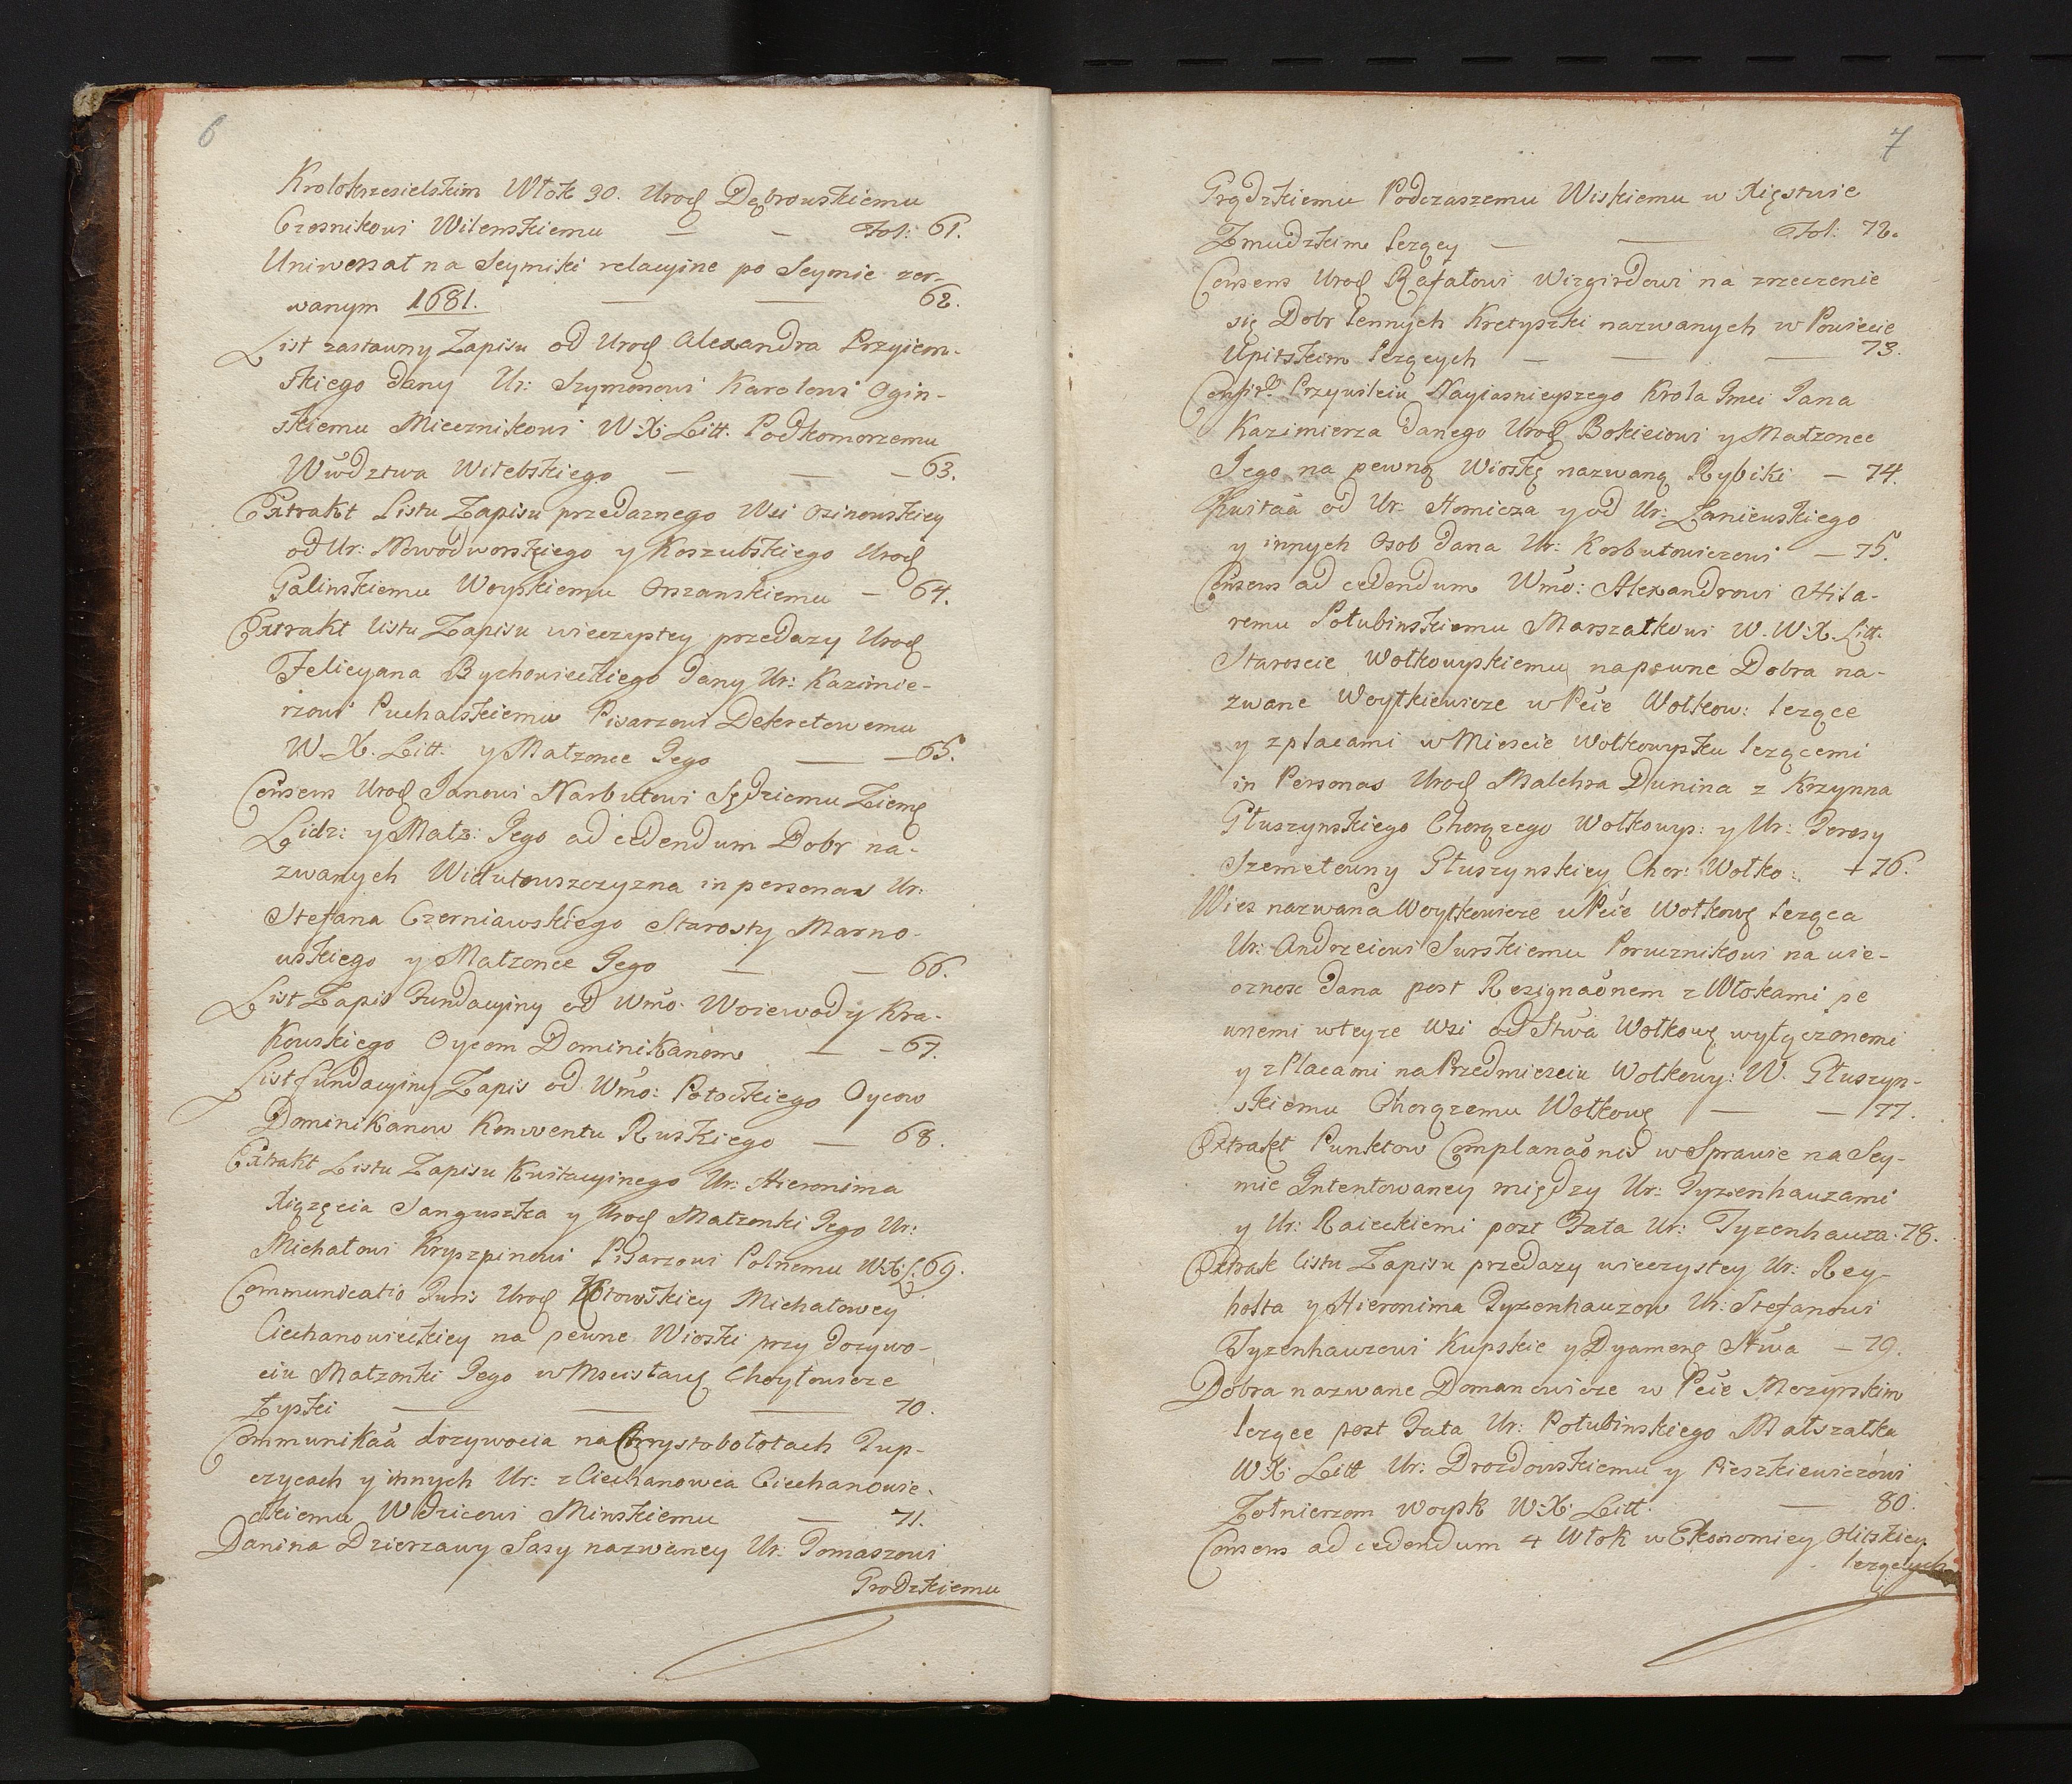 6
Krolokrzesielskim Włok 30. Urodz Dąbrowskiemu
Czesnikowi Wilenskiemu — — Fol: 61.
Uniwersał na Seymiki relacyine po Seymie zer-
wanym 1681. — — 62.
List zastawny Zapisu od Urodz Alexandra Przyiem-
skiego dany Ur: Szymonowi Karolowi Ogin-
skiemu Miecznikowi W.X. Litt. Podkomorzemu
Wwdztwa Witebskiego — — — 63.
Extrakt Listu Zapisu przedaznego Wsi Osinowskiey
od Ur: Nowodworskiego y Koszubskiego Urodz
Galinskiemu Woyskiemu Orszanskiemu — 64.
Extrakt listu Zapisu wieczystey przedazy Urodz
Felicyana Bychowieckiego dany Ur: Kazimie-
rzowi Puchalskiemu Pisarzowi Dekretowemu
W. X. Litt. y Małzonce Jego — — 65.
Consens Urodz Janowi Narbutowi Sędziemu Ziemę
Lidz: y Małz: Jego ad cedendum Dobr na-
zwanych Widutouszczyzna in personas Ur:
Stefana Czerniawskiego Starosty Marno-
wskiego y Małzonce Jego — — 66.
List Zapis Fundacyiny od Wmo: Woiewody Kra-
kowskiego Oycom Dominikanom — — 67.
List fundacyiny Zapis od Wmo: Potockiego Oycow
Dominikanow Konwentu Ruskiego — 68.
Extrakt Listu Zapisu Kwitacyinego Ur: Hieronima
Xiązęcia Sanguszka y Urodz Małzonki Jego Ur:
Michałowi Kryszpinowi Pisarzowi Polnemu W.X.L. 69.
Communicatio Juris Urodz Kotowskiey Michałowey
Ciechanowieckiey na pewne Wioski przy dozywo-
ciu Małzonki Jego w Mscisławę Choytowicze
Łyski — — — 70.
Communikaa dozywocia na Chrystobołotach Jup-
czycach y innych Ur: z Ciechanowca Ciechanowie-
ckiemu Wdzicowi Minskiemu — 71.
Danina Dzierzawy Sasy nazwaney Ur: Tomaszowi
Grodzkiemu
7
Grądzkiemu Podczaszemu Wiskiemu w Xięstwie
Zmudzkim lezącey — — Fol: 72.
Consens Urodz Rafałowi Wizgirdowi na zrzeczenie
się Dobr lennych Kretyszki nazwanych w Powiecie
Upitskim lezących — — — 73.
Confir: Przywileiu Nayiasnieyszego Krola Jmci Jana
Kazimierza danego Urodz Bokieiowi y Małzonce
Jego na pewną Wioskę nazwaną Rybiki — 74.
Kwitaa od Ur: Homicza y od Ur: Zaniewskiego
y innych Osob dana Ur: Korbutowiczowi — 75.
Consens ad cedendum Wmo: Alexandrowi Hila-
remu Połubinskiemu Marszałkowi W. W.X. Litt.
Staroscie Wołkowyskiemu na pewne Dobra na-
zwane Woytkiewicze w Pcie Wołkow: lezące
y z placami w Miescie Wołkowysku lezącemi
in Personas Urodz Malchra Dunina z Krzynna
Głuszynskiego Chorązego Wołkowys: y Ur: Teresy
Szemetowny Głuszynskiey Chor: Wołko: + 76.
Wies nazwana Woytkowicze w Pcie Wołkowę leząca
Ur: Andrzeiowi Surskiemu Porucznikowi na wie-
cznosc dana post Resignaonem z Włokami pe
wnemi w teyze Wsi od Stwa Wołkowę wytyczonemi
y z Placami na Przedmiesciu Wołkowy: W. Głuszyn-
skiemu Chorązemu Wołkowę — — 77.
Extrakt Punktow Complanaonis w Sprawie na Sey-
mie Intentowaney między Ur: Tyzenhauzami
y Ur: Raieckiemi post Fata Ur: Tyzenhauza. 78.
Extrak listu Zapisu przedazy wieczystey Ur: Rey-
holta y Hieronima Tyzenhauzow Ur: Stefanowi
Tyzenhauzowi Kupskie y Dyamenę Stwa — 79.
Dobra nazwane Domanowicze w Pcie Mozyrskim
lezące post Fata Ur: Połubinskiego Małszałka
W.X. Litt Ur: Drozdowskiemu y Pieszkiewiczowi
Zołnierzom Woysk W.X. Litt. — 80.
Consens ad cedendum 4 Włok w Ekonomiey Olitskiey
lezących